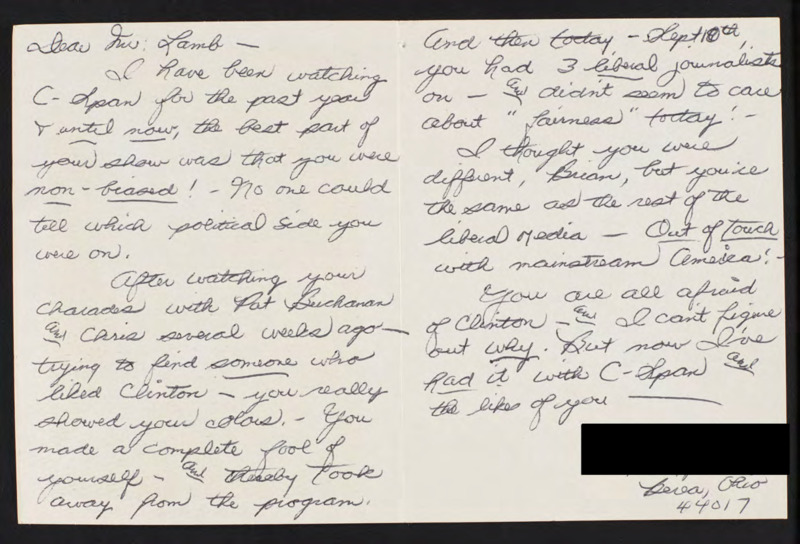 Dear Mr. Lamb —
I have been watching
C-Span for the past year
& until now, the best part of
your show was that you were
non-biased! - No one could
tell which political side you
were on.
After watching your
charades with Pat Buchanan
and Chris several weeks ago —
trying to find someone who
liked Clinton — you really
showed your colors. - You
made a complete fool of
yourself - and thereby took
away from the program.
And then today - Sept 10th,
you had 3 liberal journalists
on - and didn't seem to care
about "fairness" today! -
I thought you were
different, Brian, but you're
the same as the rest of the
liberal media — Out of Touch
with mainstream America! -
You are all afraid
of Clinton - and I can't figure
out why. But now I've
had it with C-Span and
the likes of you —
Berea, Ohio
44017